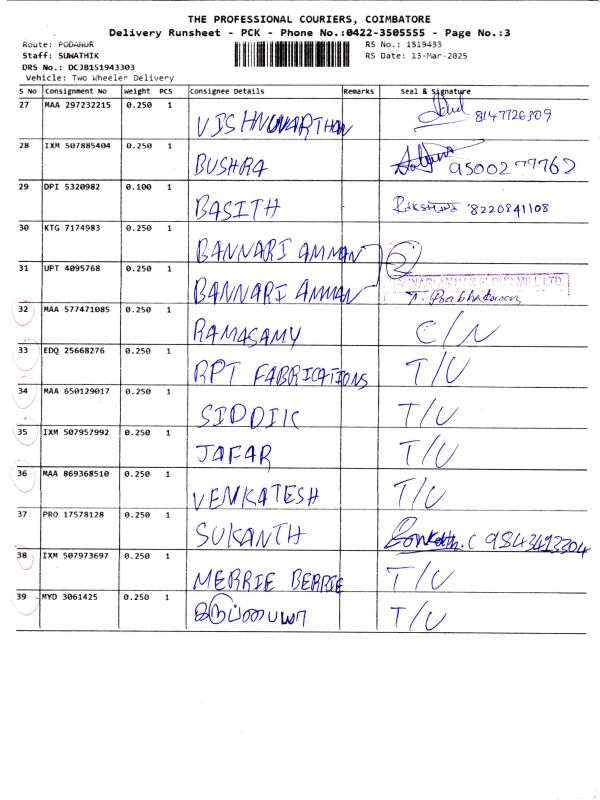 THE PROFESSIONAL COURIERS, COIMBATORE
Delivery Runsheet - PCK - Phone No.:0422-3505555 - Page No.:3
Route: PODANUR
RS No.: 1519433
Staff: SUWATHIK
RS Date: 13-Mar-2025
DRS No.: DCJB151943303
Vehicle: Two Wheeler Delivery
S No Consignment No Weight PCS Consignee Details Remarks Seal & Signature
27 MAA 297232215 0.250 1 VISHNUVARTHAN 8147726309
28 IXM 507885404 0.250 1 BUSHRA 9500277762
29 DPI 5320982 0.100 1 BASITH 8220841108
30 KTG 7174983 0.250 1 BANNARI AMMAN 2
31 UPT 4095768 0.250 1 BANNARI AMMAN T. Prabhakaran
32 MAA 577471085 0.250 1 RAMASAMY C/N
33 EDQ 25668276 0.250 1 RPT FABRICATIONS T/U
34 MAA 650129017 0.250 1 SIDDIK T/U
35 IXM 507957992 0.250 1 JAFAR T/U
36 MAA 869368510 0.250 1 VENKATESH T/U
37 PRO 17578128 0.250 1 SUKANTH 9843493304
38 IXM 507973697 0.250 1 MERRIE BERRIE T/U
39 MYD 3061425 0.250 1 T/U